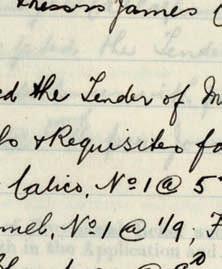 James (
ed the Tender of M
& Requisites fo
Calico, No 1 @ 5
nel, No 1 @ 1/9, F